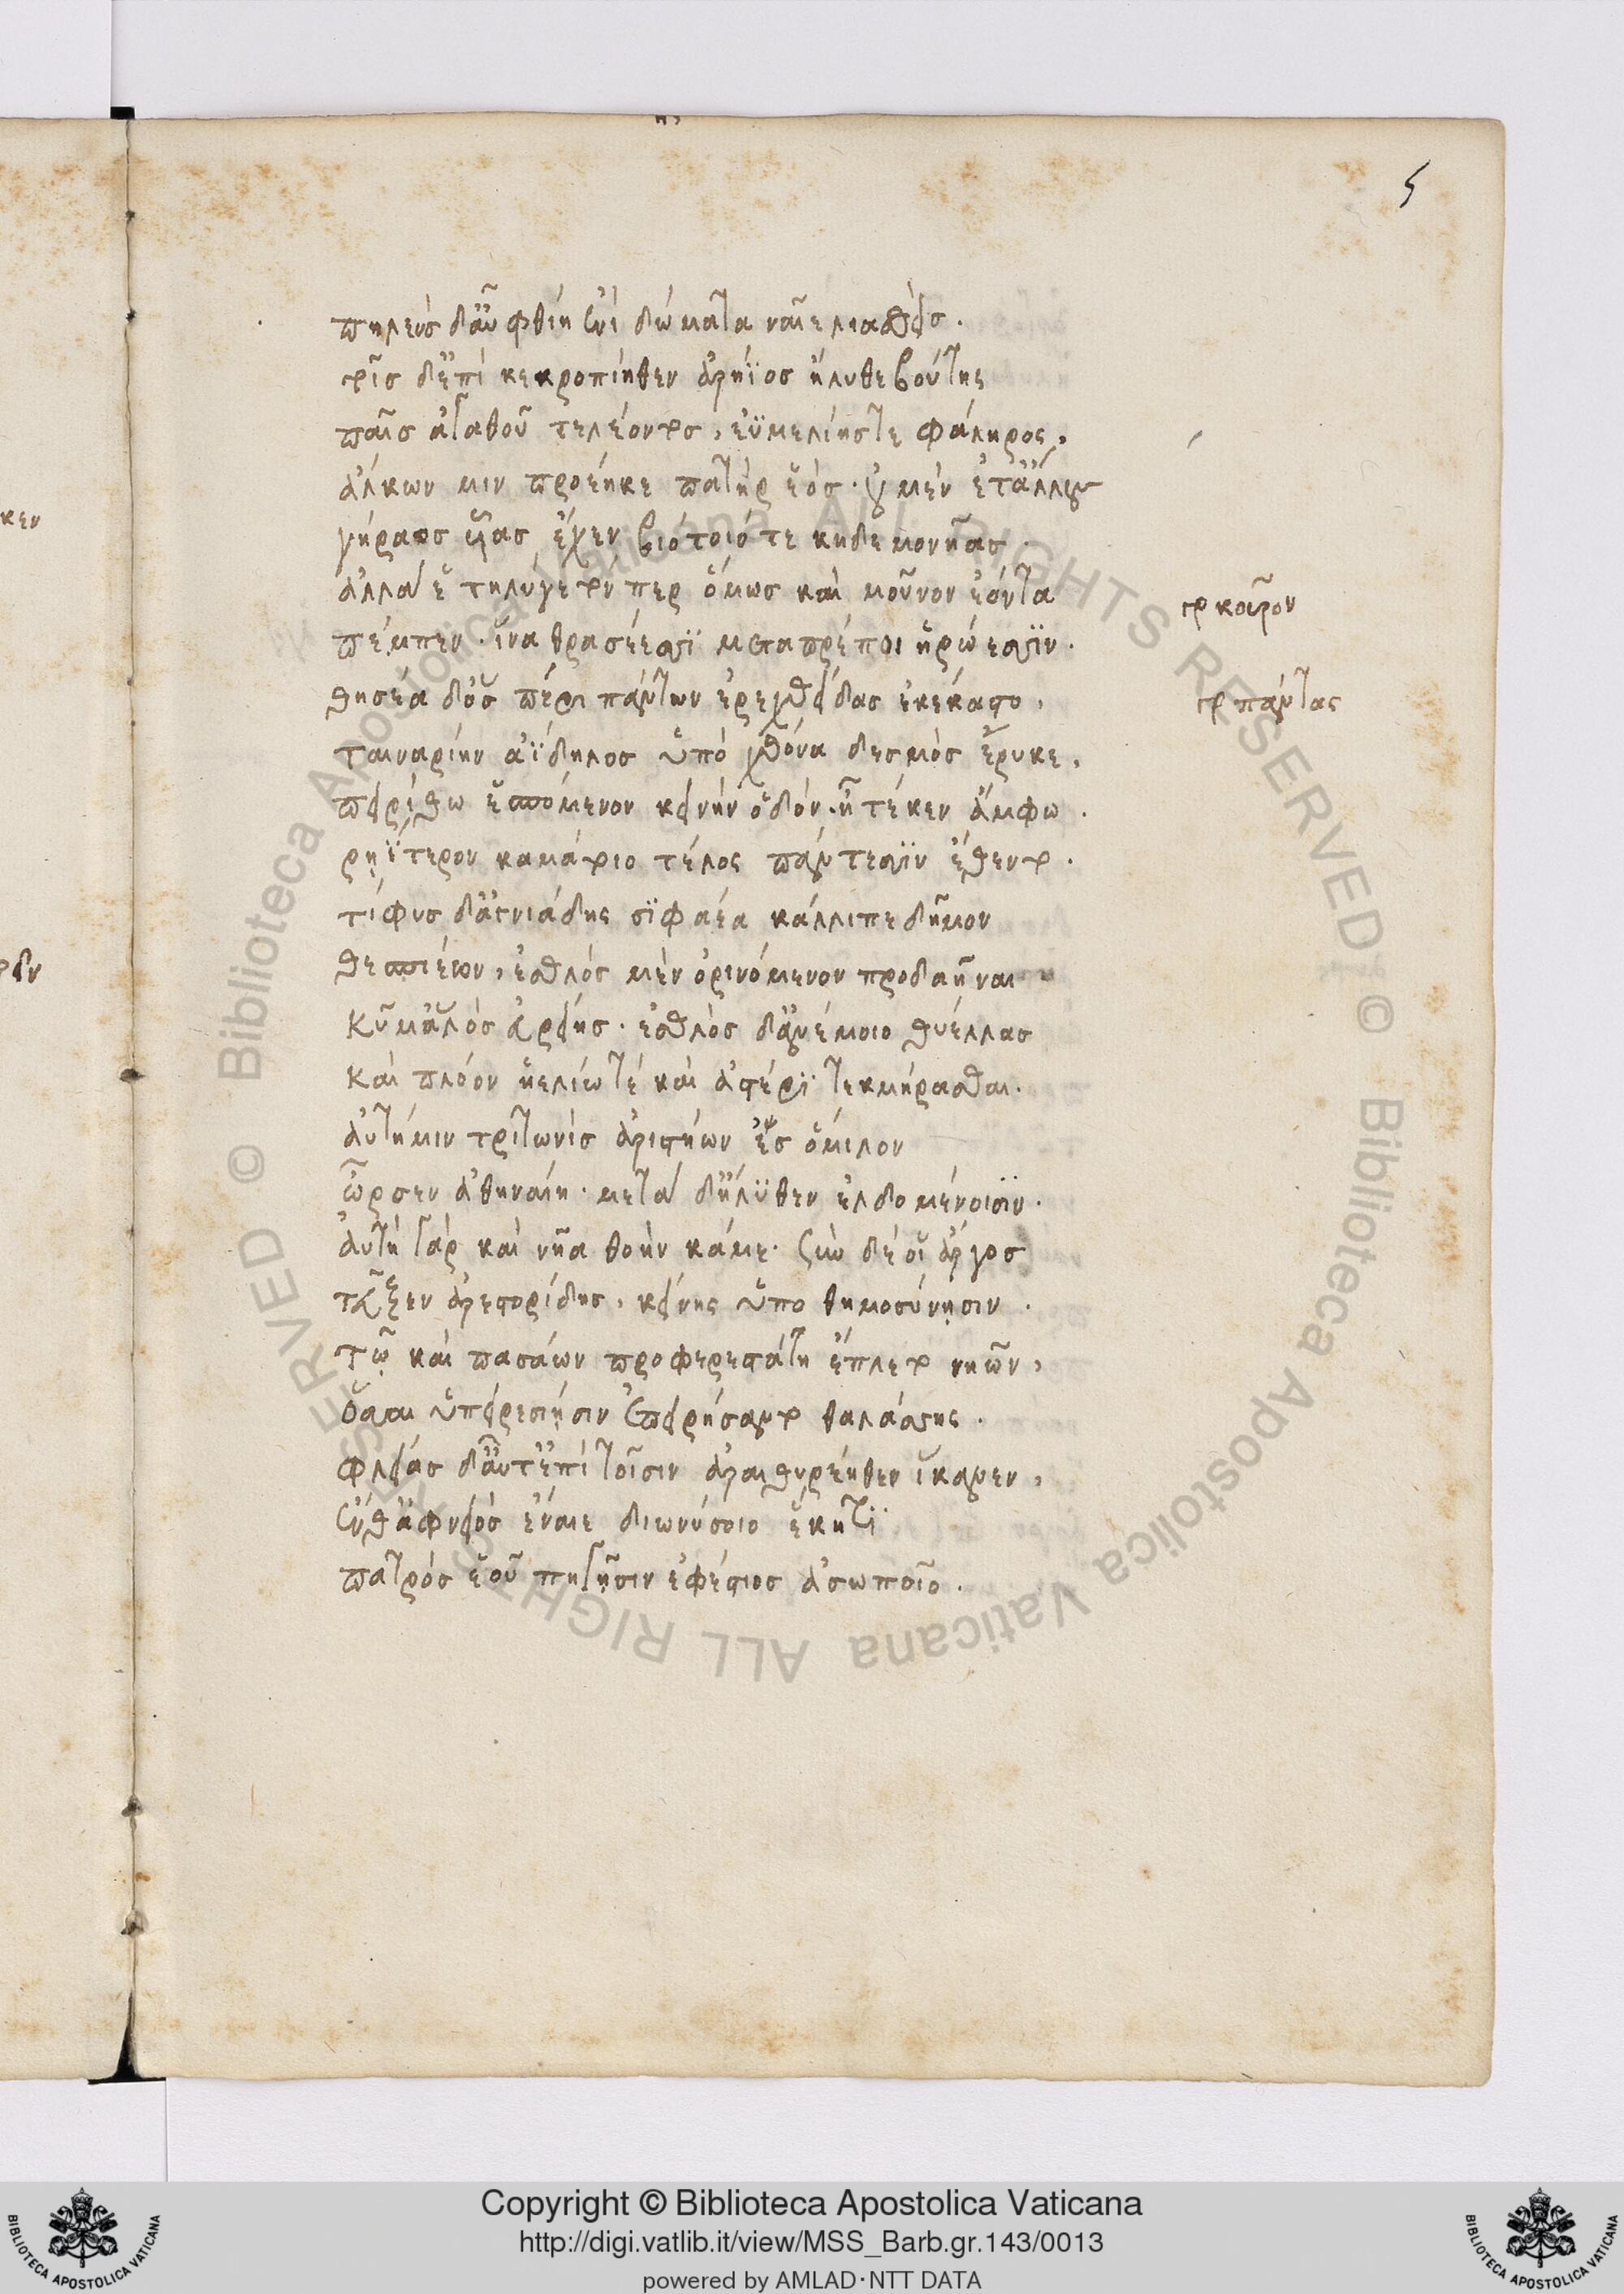 5
πηλεύς δ' αὖ φθίη ἐνὶ δώματα ναῖε λιασθείς.
τοῖς δ' ἐπὶ κεκροπίηθεν ἀρήϊος ἤλυθε βούτης
παῖς ἀγαθοῦ τελέοντος, ἐϋμελίης τε φάληρος,
ἄλκων μιν προέηκε πατὴρ ἑός. οὐ μὲν ἔτ' ἄλλους
γήραος υἷας ἔχεν βιότοιό τε κηδεμονῆας.
ἀλλὰ ἑ τηλύγετόν περ ὅμως καὶ μοῦνον ἐόντα
πέμπεν. ἵνα θρασέεσσι μεταπρέποι ἡρώεσσιν.
θησέα δ' ὃς περὶ πάντων ἐρεχθείδας ἐκέκαστο,
ταιναρίην ἀΐδηλος ὑπὸ χθόνα δεσμὸς ἔρυκε,
πειρίθω ἑσπόμενον κεινὴν ὁδόν. ἦ τέκεν ἄμφω.
ρηΐτερον καμάτοιο τέλος πάντεσσιν ἔθεντο.
τίφυς δ' ἁγνιάδης σιφαέα κάλλιπε δῆμον
θεσπιέων, ἐσθλὸς μὲν ὀρινόμενον προδαῆναι
κῦμ' ἁλὸς εὐρείης. ἐσθλὸς δ' ἀνέμοιο θυέλλας
καὶ πλόον ἠελίῳ τέ καὶ ἀστέρι τεκμήρασθαι.
αὐτή μιν τριτωνὶς ἀριστήων ἐς ὅμιλον
ὦρσεν ἀθηναίη. μετὰ δ' ἤλυθεν ἐλδομένοισιν.
αὐτὴ γὰρ καὶ νῆα θοὴν κάμε. σὺν δέ οἱ ἄργος
τεῦξεν ἀρεστορίδης, κείνης ὑπο θημοσύνησιν.
τῷ καὶ πασάων προφερεστάτη ἔπλετο νηῶν,
ὅσσαι ὑπ' εἰρεσίῃσιν ἐπειρήσαντο θαλάσσης.
φλείας δ' αὖτ' ἐπὶ τοῖσιν ἀραιθυρέηθεν ἵκανεν,
ἔνθ' ἀφνειὸς ἔναιε διωνύσοιο ἕκητι
πατρὸς ἑοῦ πηγῇσιν ἐφέστιος ἀσωποῖο.
γρ κοῦρον
γρ πάντας
κεν
Copyright © Biblioteca Apostolica Vaticana
http://digi.vatlib.it/view/MSS_Barb.gr.143/0013
powered by AMLAD·NTT DATA
BIBLIOTECA APOSTOLICA VATICANA
BIBLIOTECA APOSTOLICA VATICANA
© Biblioteca Apostolica Vaticana ALL RIGHTS RESERVED © Biblioteca Apostolica Vaticana ALL RIGHTS RESERVED